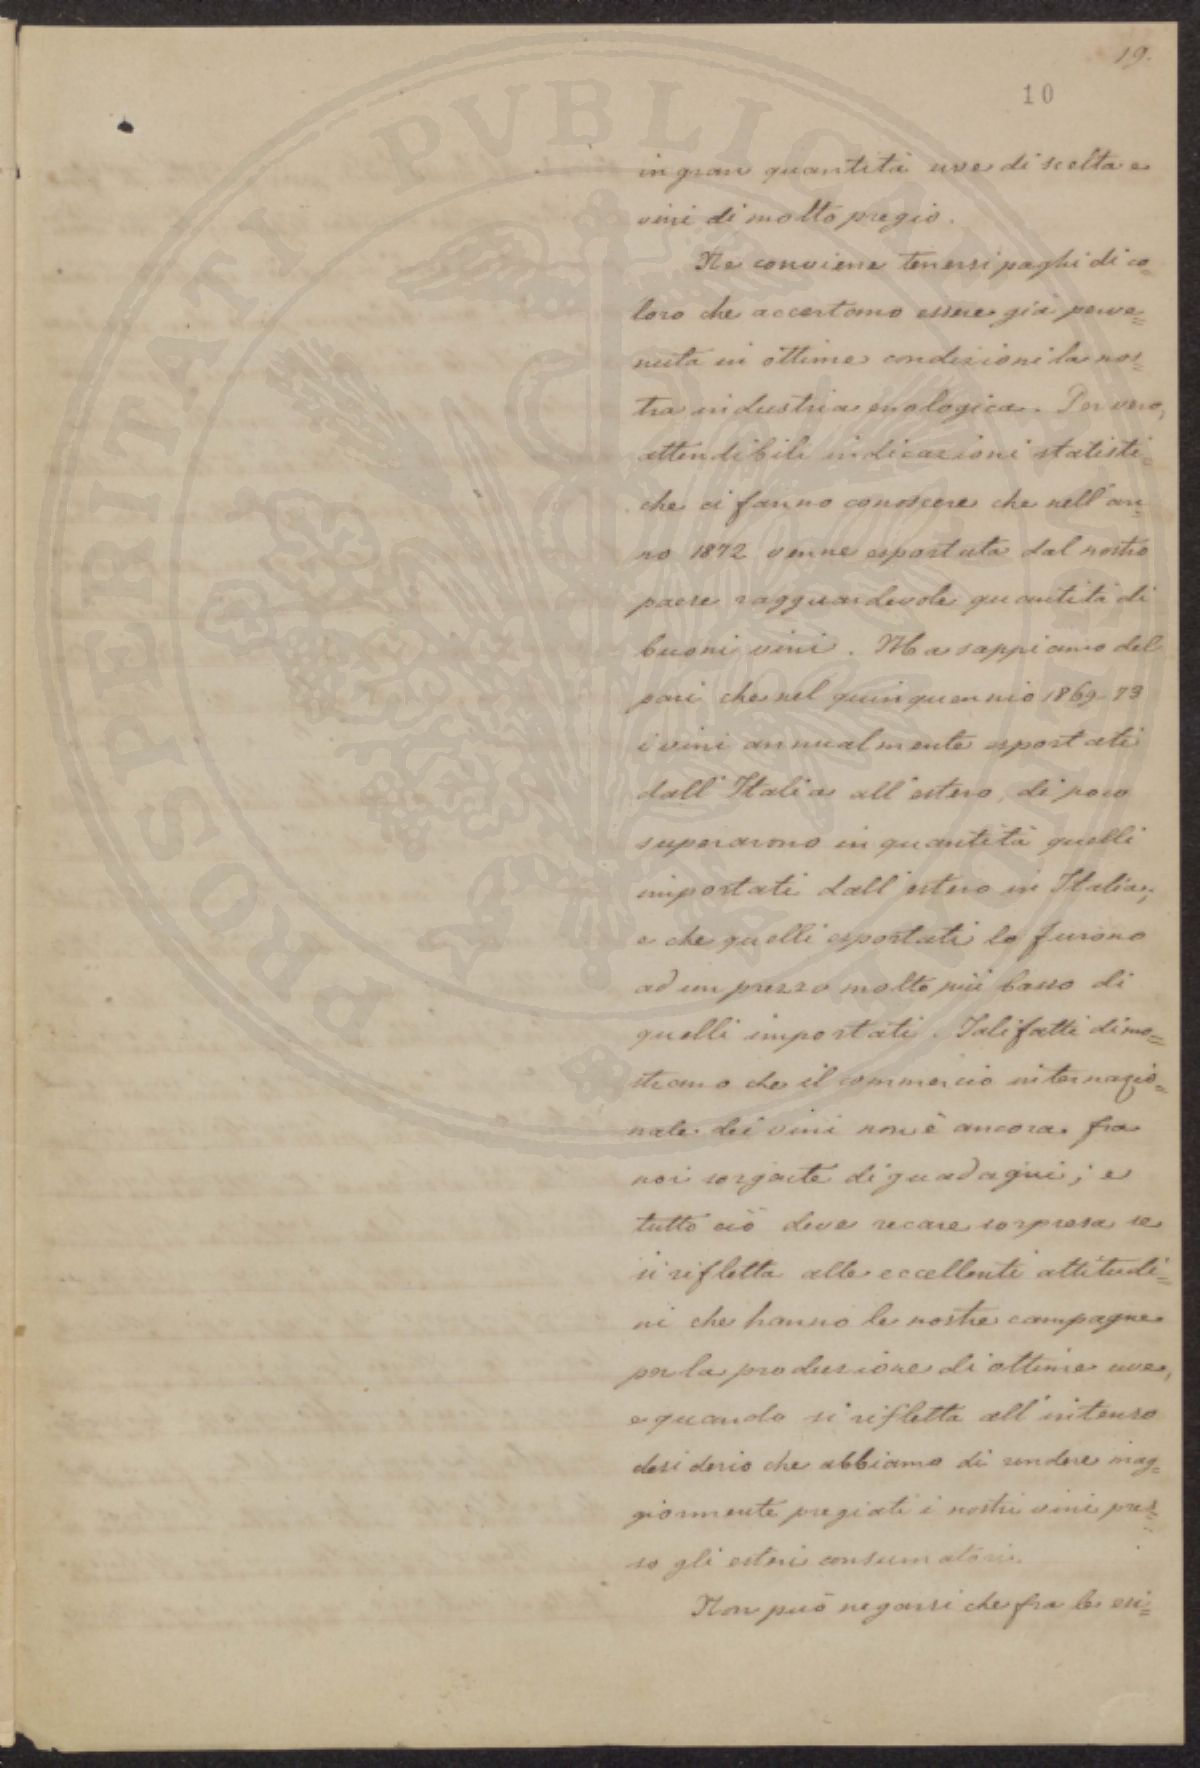 19.
10
in gran quantità uve di scelta e
vini di molto pregio.
Ne conviene tenersi paghi di co-
loro che accertano essere già perve=
nuta in ottime condizioni la nos=
tra industria enologica. Per vero,
attendibili indicazioni statisti=
che ci fanno conoscere che nell'an-
no 1872 venne esportata dal nostro
paese ragguardevole quantità di
buoni vini. Ma sappiamo del
pari che nel quinquennio 1869-73
i vini annualmente esportati
dall'Italia all'estero, di poco
superarono in quantità quelli
importati dall'estero in Italia;
e che quelli esportati lo furono
ad un prezzo molto più basso di
quelli importati. Tali fatti dimo=
strano che il commercio internazio=
nale dei vini non è ancora fra
noi sorgente di guadagni; e
tutto ciò deve recare sorpresa se
si rifletta alle eccellenti attitudi=
ni che hanno le nostre campagne
per la produzione di ottime uve,
e quando si rifletta all'intenso
desiderio che abbiamo di rendere mag=
giormente pregiati i nostri vini pres=
so gli esteri consumatori.
Non può negarsi che fra le esi=
PROSPERITATI PVBLICAE